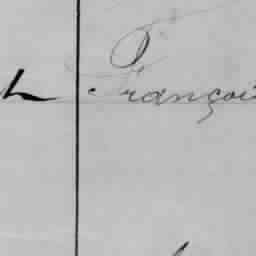 h Françoi